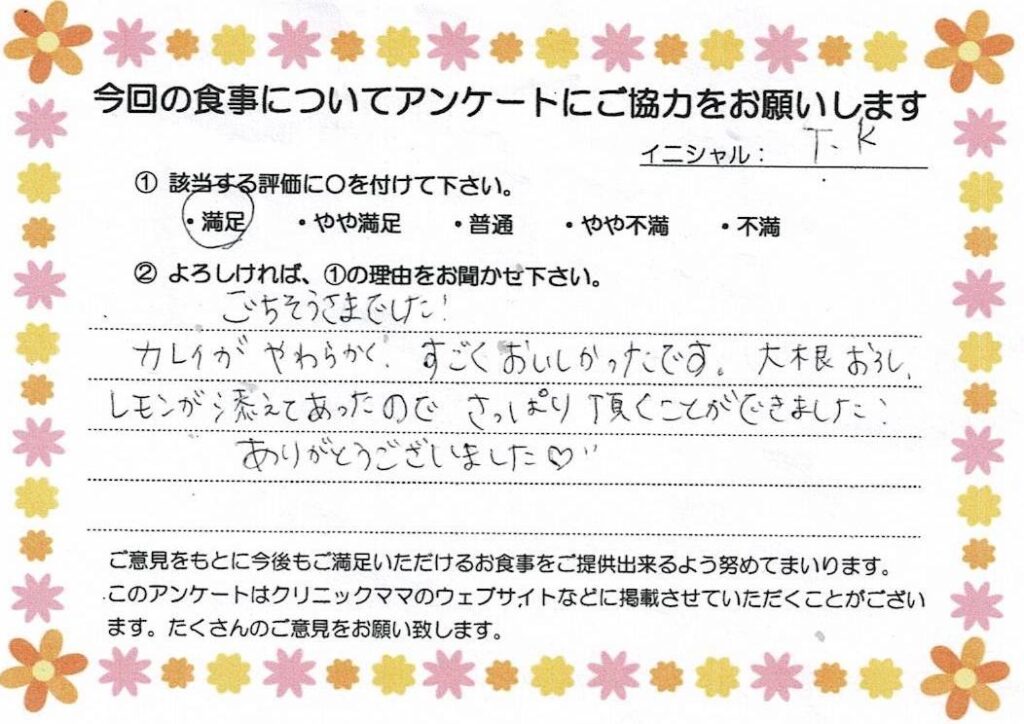 今回の食事についてアンケートにご協力をお願いします
イニシャル： T.K
① 該当する評価に〇を付けて下さい。
・満足 ・やや満足 ・普通 ・やや不満 ・不満
② よろしければ、①の理由をお聞かせ下さい。
ごちそうさまでした！
カレイが やわらかく、すごくおいしかったです。大根おろし、
レモンが添えてあったので さっぱり 頂くことができました！
ありがとうございました♡
ご意見をもとに今後もご満足いただけるお食事をご提供出来るよう努めてまいります。
このアンケートはクリニックママのウェブサイトなどに掲載させていただくことがござい
ます。たくさんのご意見をお願い致します。